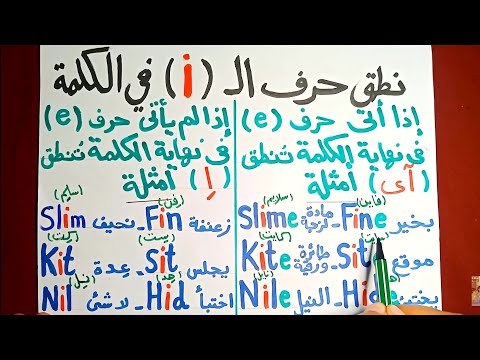 نطق حرف الـ (i) في الكلمة
إذا أتى حرف (e)
في نهاية الكلمة تُنطق
(آى) أمثلة
(فاين) (سلايم)
بخير Fine - مادة لزجة Slime
(كايت)
موقع - طائرة ورقية Kite
(نايل)
يختبئ - النيل Nile
إذا لم يأتى حرف (e)
في نهاية الكلمة تُنطق
(إِ) أمثلة
(فِن) (سليم)
زعنفة Fin - نحيف Slim
(سِت) (كِت)
يجلس Sit - عِدة Kit
(هِد) (نِيل)
اختبأ Hid - لا شئ Nil